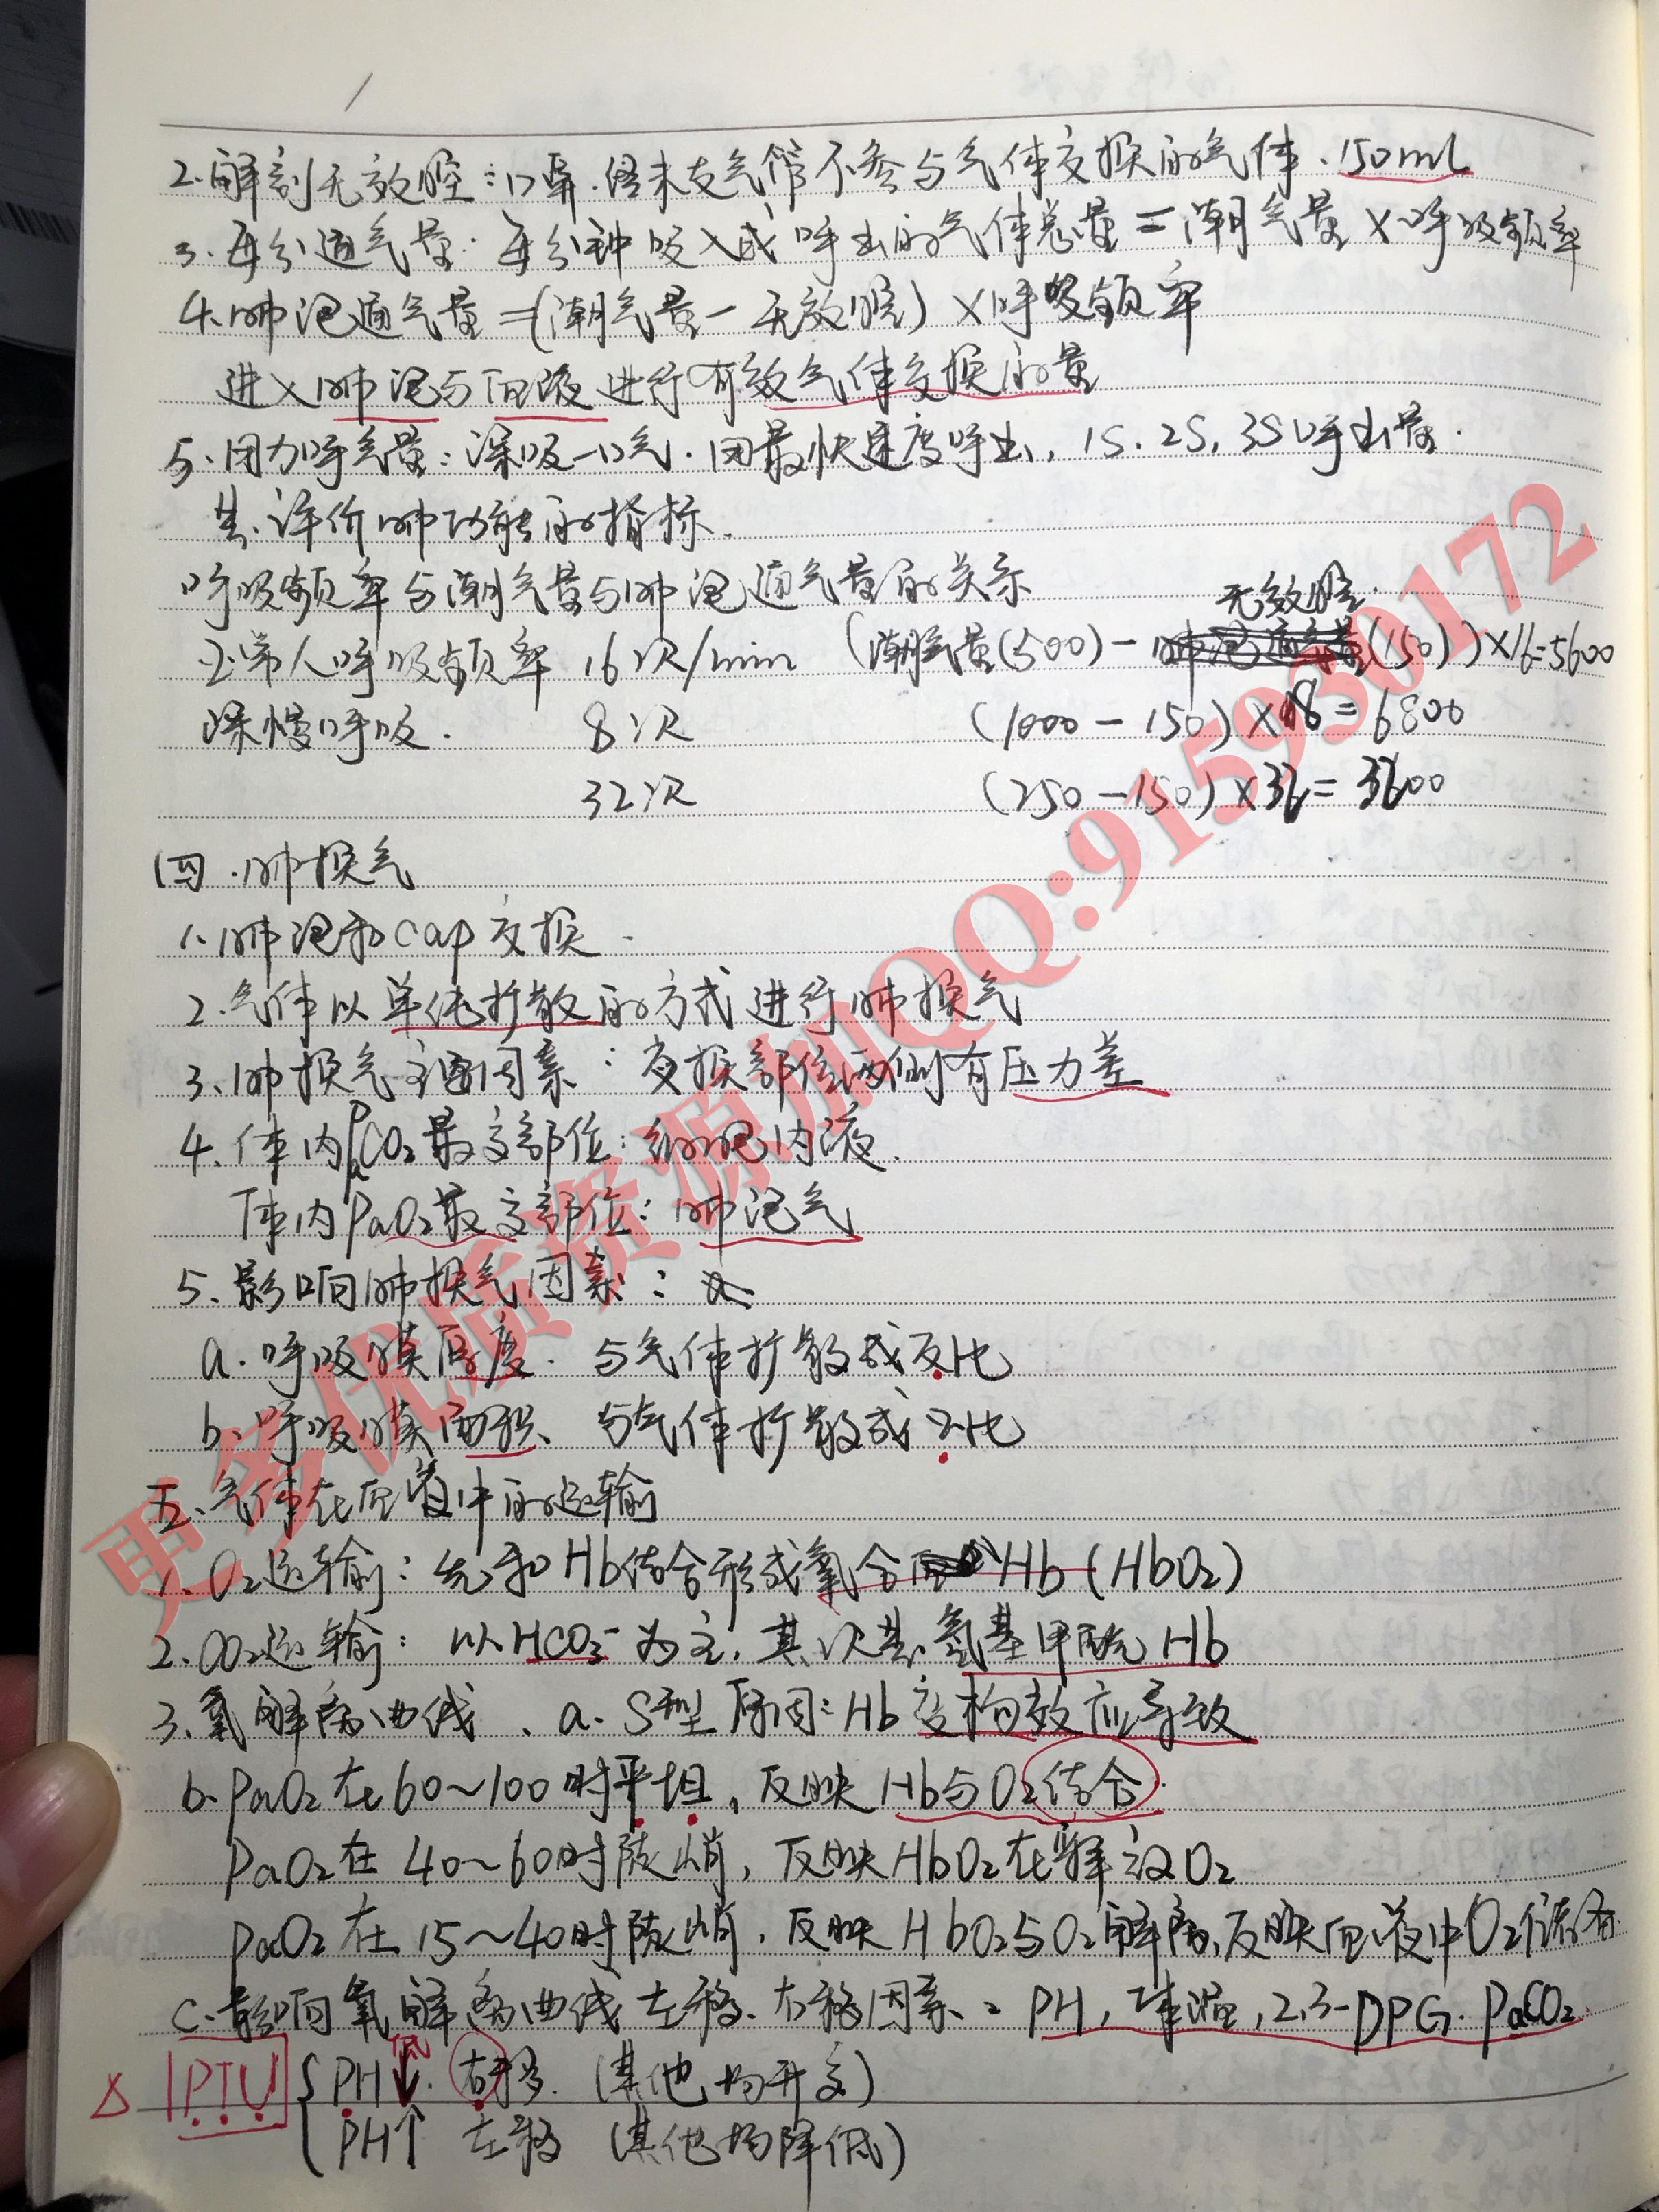 2.解剖无效腔:口鼻.终末支气管不参与气体交换的气体.150mL
3.每分通气量:每分钟吸入或呼出的气体总量=潮气量×呼吸频率
4.肺泡通气量=(潮气量-无效腔)×呼吸频率
进入肺泡与血液进行有效气体交换的量
5.用力呼气量:深吸一口气.用最快速度呼出,1S.2S,3S呼出量.
是.评价肺功能的指标.
呼吸频率与潮气量与肺泡通气量的关系
无效腔.
正常人呼吸频率 16次/min (潮气量(500)-肺泡通气量(150))×16=5600
深慢呼吸. 8次 (1000-150)×8=6800
32次 (250-150)×36=3600
四.肺换气
1.肺泡和cap交换.
2.气体以单纯扩散的方式进行肺换气
3.肺换气主要因素:交换部位两侧有压力差
4.体内PaCO₂最高部位:细胞内液.
体内PaO₂最高部位:肺泡气
5.影响肺换气因素:
a.呼吸膜厚度.与气体扩散成反比
b.呼吸膜面积、与气体扩散成正比
五、气体在血液中的运输
1.O₂运输:先和Hb结合形成氧合Hb(HbO₂)
2.CO₂运输:以HCO₃⁻为主,其次是.氨基甲酰Hb
3.氧解离曲线、a.S型原因:Hb变构效应导致
b.PaO₂在60~100时平坦,反映Hb与O₂结合.
PaO₂在40~60时陡峭,反映HbO₂在释放O₂
PaO₂在15~40时陡峭,反映HbO₂与O₂解离,反映血液中O₂储备.
C.影响氧解离曲线左移、右移因素:PH,体温,2,3-DPG.PaCO₂.
低
△ IPTU { PH↓.右移.(其他均升高)
PH↑ 左移 (其他均降低)
更多优质资源加QQ:915930172